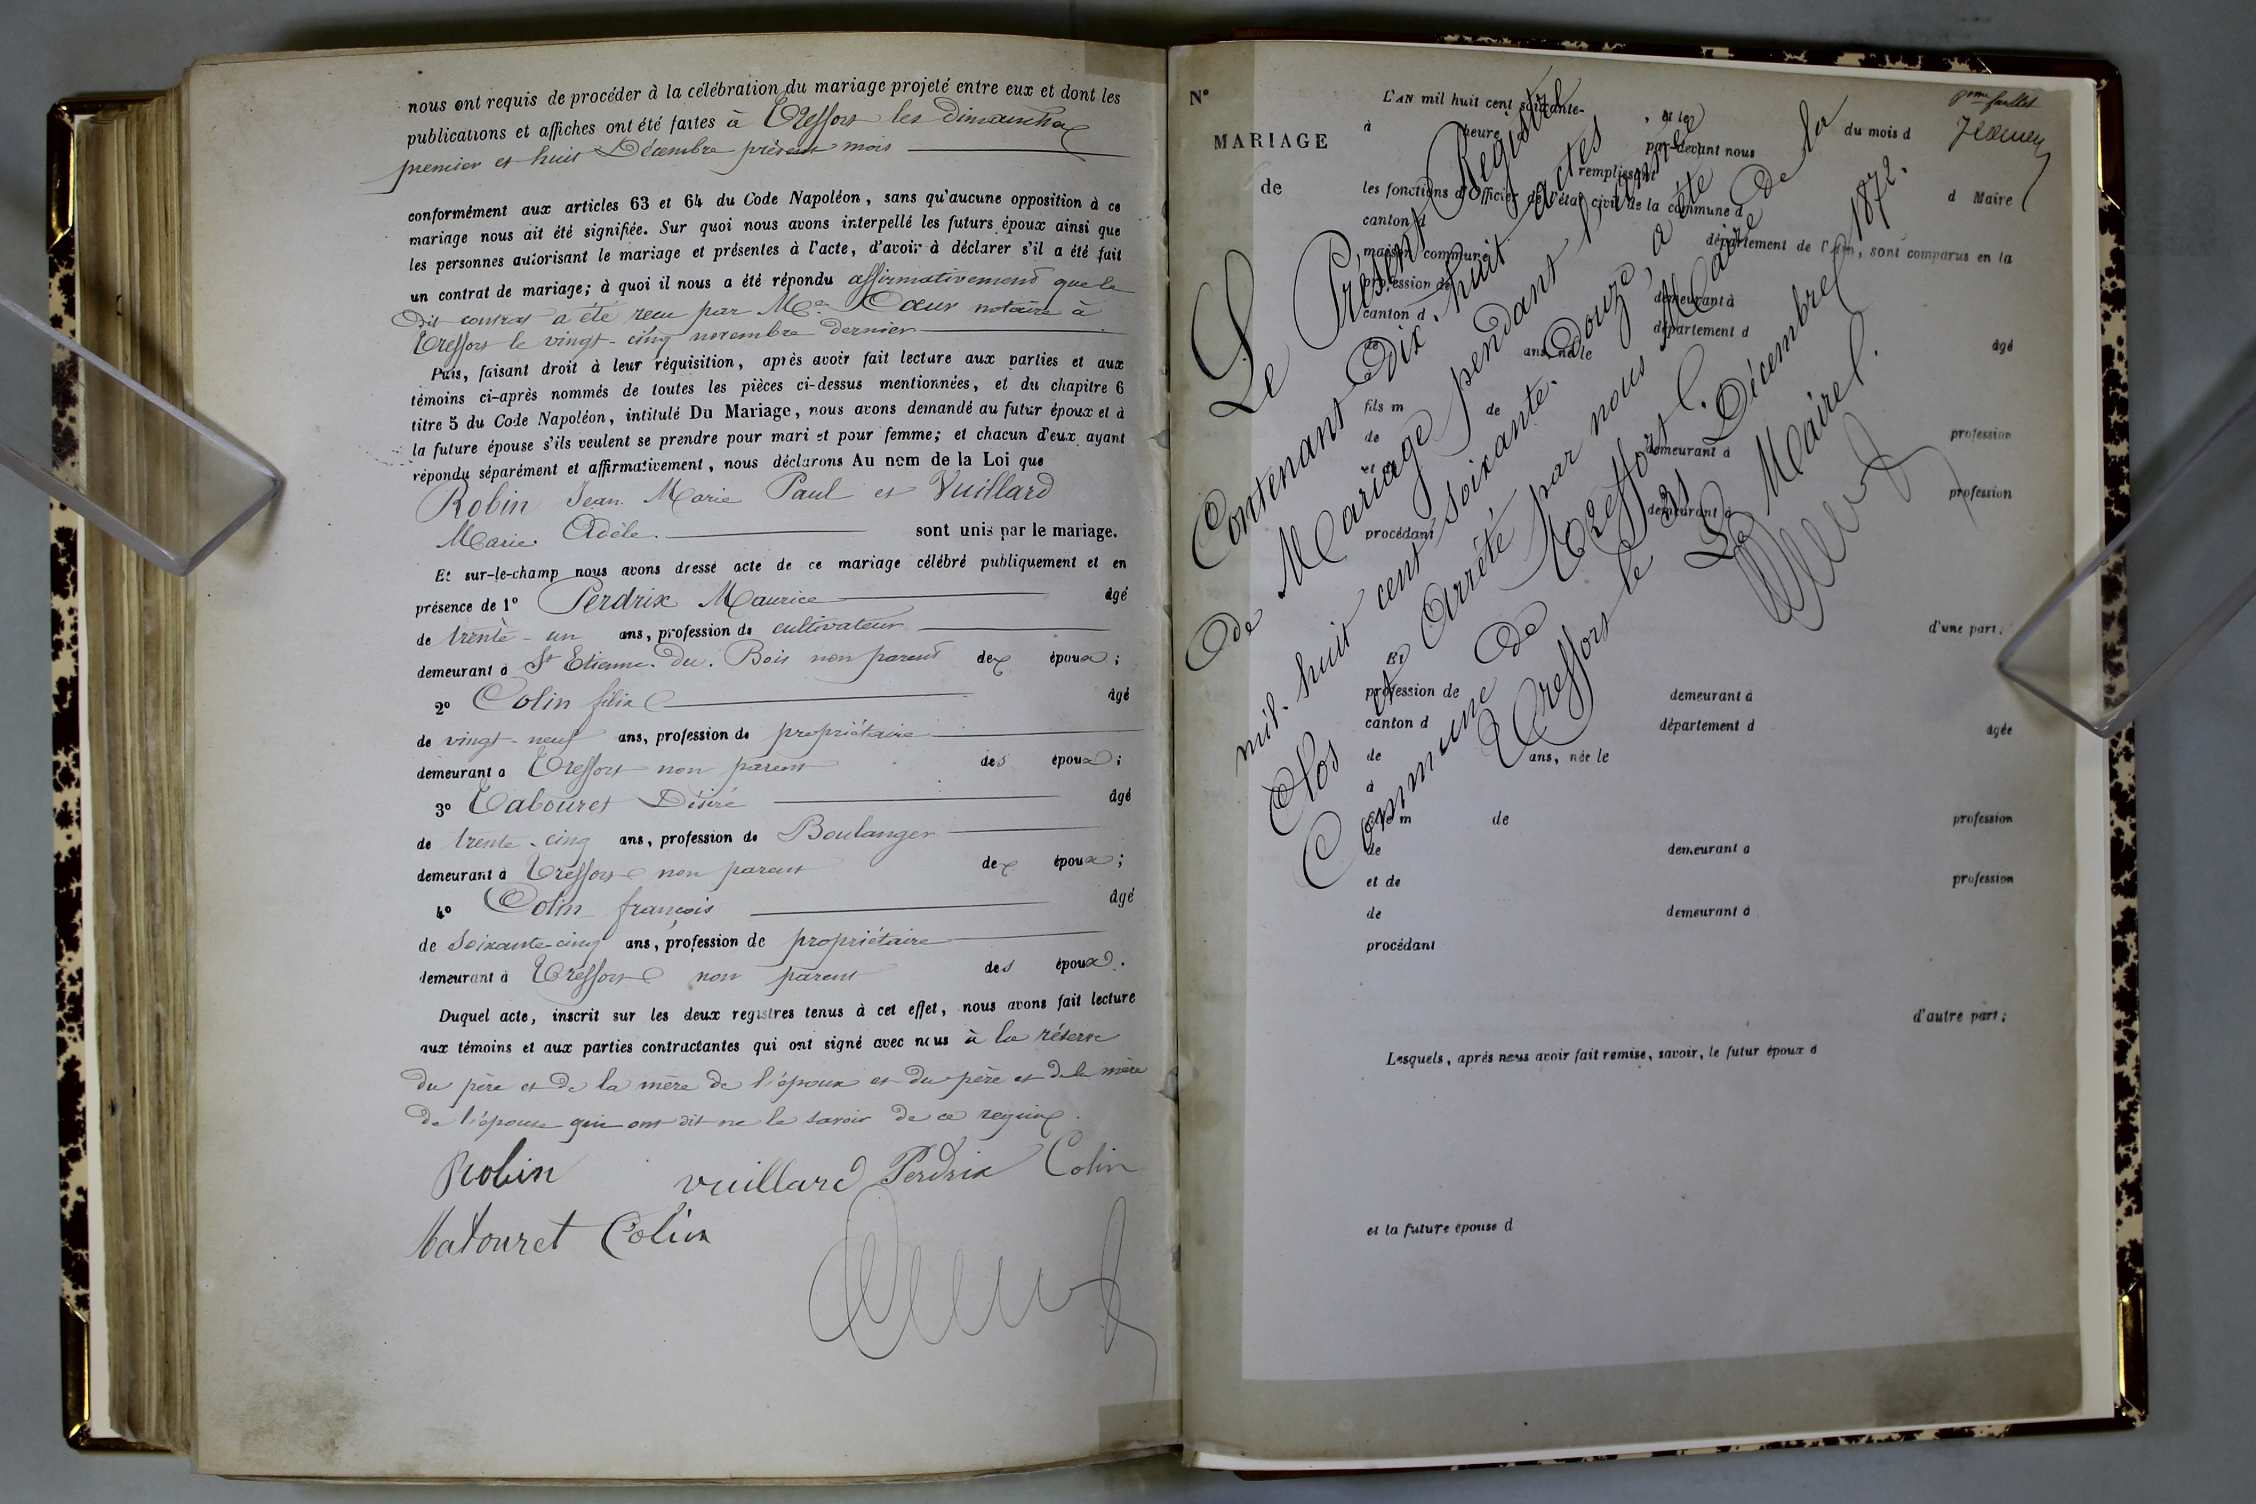 nous ont requis de procéder à la célébration du mariage projeté entre eux et dont les
publications et affiches ont été faites à Treffort les dimanches
premier et huit Décembre présent mois
conformément aux articles 63 et 64 du Code Napoléon, sans qu'aucune opposition à ce
mariage nous ait été signifiée. Sur quoi nous avons interpellé les futurs époux ainsi que
les personnes autorisant le mariage et présentes à l'acte, d'avoir à déclarer s'il a été fait
un contrat de mariage; à quoi il nous a été répondu affirmativement que le
dit contrat a été reçu par Me Cœur notaire à
Treffort le vingt-cinq novembre dernier
Puis, faisant droit à leur réquisition, après avoir fait lecture aux parties et aux
témoins ci-après nommés de toutes les pièces ci-dessus mentionnées, et du chapitre 6
titre 5 du Code Napoléon, intitulé Du Mariage, nous avons demandé au futur époux et à
la future épouse s'ils veulent se prendre pour mari et pour femme; et chacun d'eux ayant
répondu séparément et affirmativement, nous déclarons Au nom de la Loi que
Robin Jean Marie Paul et Vuillard
Marie Adèle. sont unis par le mariage.
Et sur-le-champ nous avons dressé acte de ce mariage célébré publiquement et en
présence de 1° Perdrix Maurice âgé
de trente-un ans, profession de cultivateur
demeurant à St Etienne. du. Bois non parent des époux;
2° Colin félix âgé
de vingt-neuf ans, profession de propriétaire
demeurant à Treffort non parent des époux;
3° Tabouret Désiré âgé
de trente-cinq ans, profession de Boulanger
demeurant à Treffort non parent des époux;
4° Colin françois âgé
de soixante-cinq ans, profession de propriétaire
demeurant à Treffort non parent des époux.
Duquel acte, inscrit sur les deux registres tenus à cet effet, nous avons fait lecture
aux témoins et aux parties contractantes qui ont signé avec nous à la réserve
du père et de la mère de l'époux et du père et de la mère
de l'épouse qui ont dit ne le savoir de ce requis.
Robin vuillard Perdrix Colin
Tabouret Colin
N°
MARIAGE
de
L'AN mil huit cent soixante- , et le du mois d
à heure par-devant nous
remplissant d Maire
les fonctions d'Officier de l'état civil de la commune d
canton d département de l'Ain, sont comparus en la
maison commune
profession de demeurant à
canton d département d
de ans, né le âgé
à
fils m de profession
de demeurant à
et profession
demeurant à
procédant
d'une part;
Et
profession de demeurant à
canton d département d
de ans, née le âgée
à
fille m de profession
de demeurant à
et de profession
de demeurant à
procédant
d'autre part;
Lesquels, après nous avoir fait remise, savoir, le futur époux d
et la future épouse d
feuillet
Le Présent Registre
Contenant Dix-huit actes
de Mariage pendant l'année
mil-huit cent soixante-Douze, a été
Clos et Arrêté par nous Maire de la
Commune de Treffort.
Treffort le 31 Décembre 1872.
Le Maire.